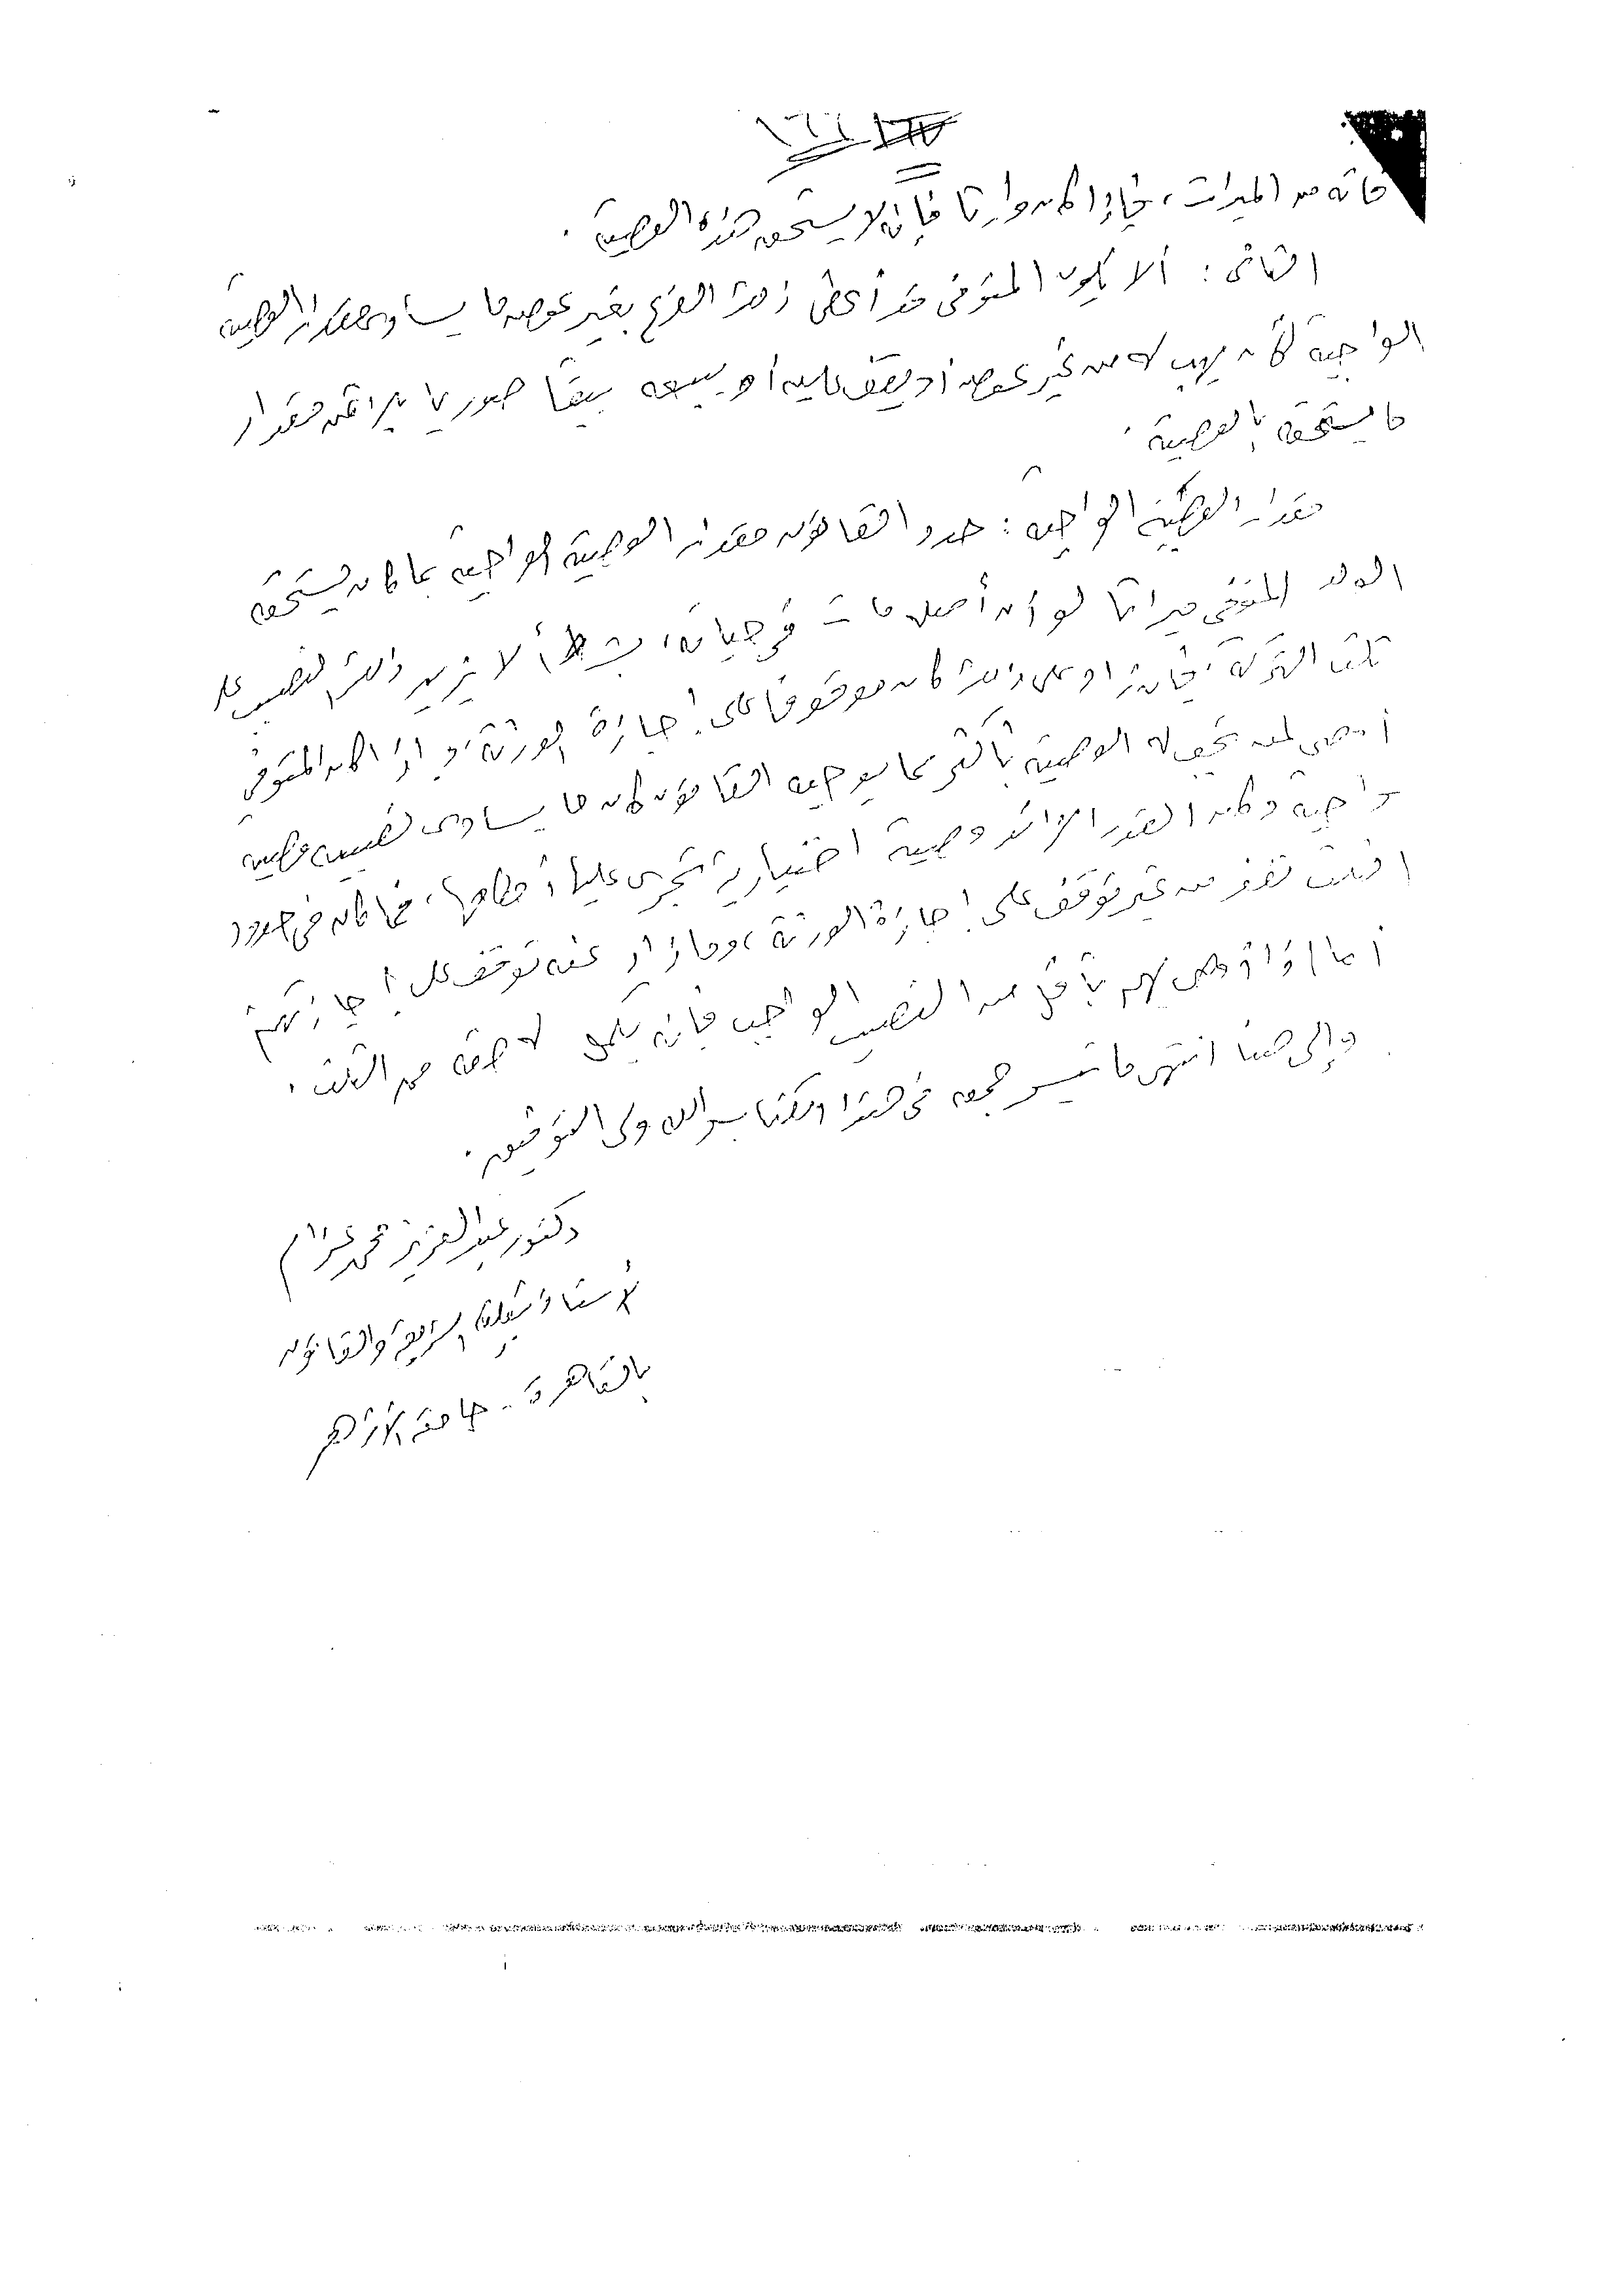 ١٦٦
فاته من الميراث، فإذا كان وارثا فإنه لا يستحق هذه الوصية.
الثانى: ألا يكون المتوفى قد أعطى ذلك الفرع بغير عوض ما يساوى مقدار الوصية
الواجبة كأن يهب له من غير عوض أو يقف عليه أو يبيعه بيعا صوريا مقدار
ما يستحقه بالوصية.
مقدار الوصية الواجبة: حدد القانون مقدار الوصية الواجبة بما كان يستحقه
الولد المتوفى ميراثا لو أن أصله مات فى حياته، بشرط ألا يزيد ذلك النصيب على
ثلث التركة، فإن زاد على ذلك كان موقوفا على إجازة الورثة، وإذا كان المتوفى
أوصى لمن تجب له الوصية بأكثر مما يوجبه القانون كان ما يساوى نصيبه وصية
واجبة وكان القدر الزائد وصية اختيارية تجرى عليها أحكامها، فما كان فى حدود
الثلث نفذ من غير توقف على إجازة الورثة، وما زاد عنه توقف على إجازتهم
أما إذا أوصى لهم بأقل من النصيب الواجب فإنه يكمل له حقه من الثلث.
وإلى هنا انتهى ما تيسر جمعه فى هذا الكتاب والله ولى التوفيق.
دكتور عبد العزيز محمد عزام
الأستاذ بكلية الشريعة والقانون
بالقاهرة - جامعة الأزهر